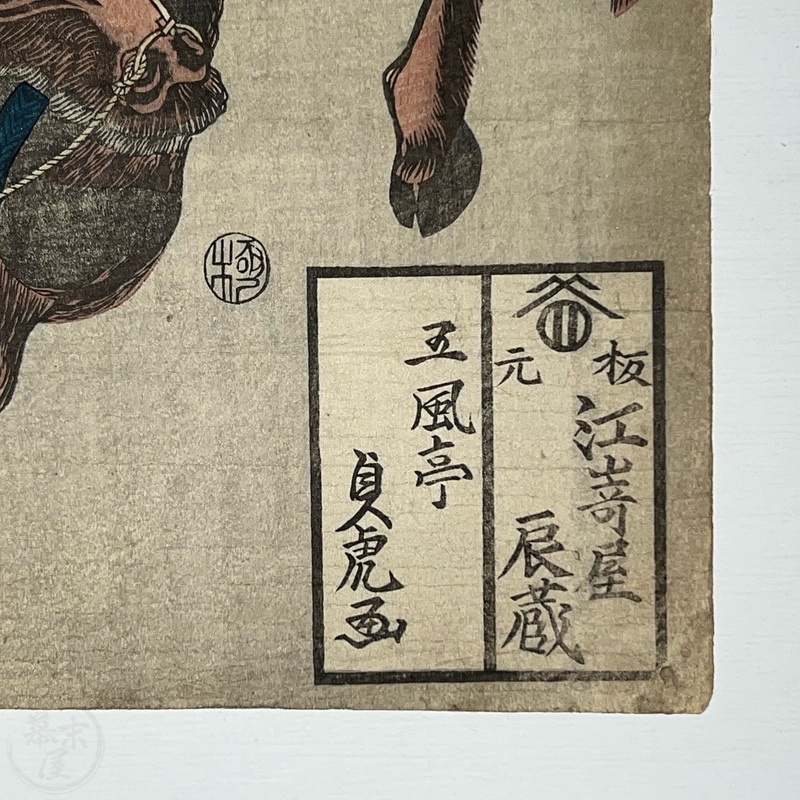 板元
江嵜屋
辰蔵
五風亭
貞虎画
極
幕末屋